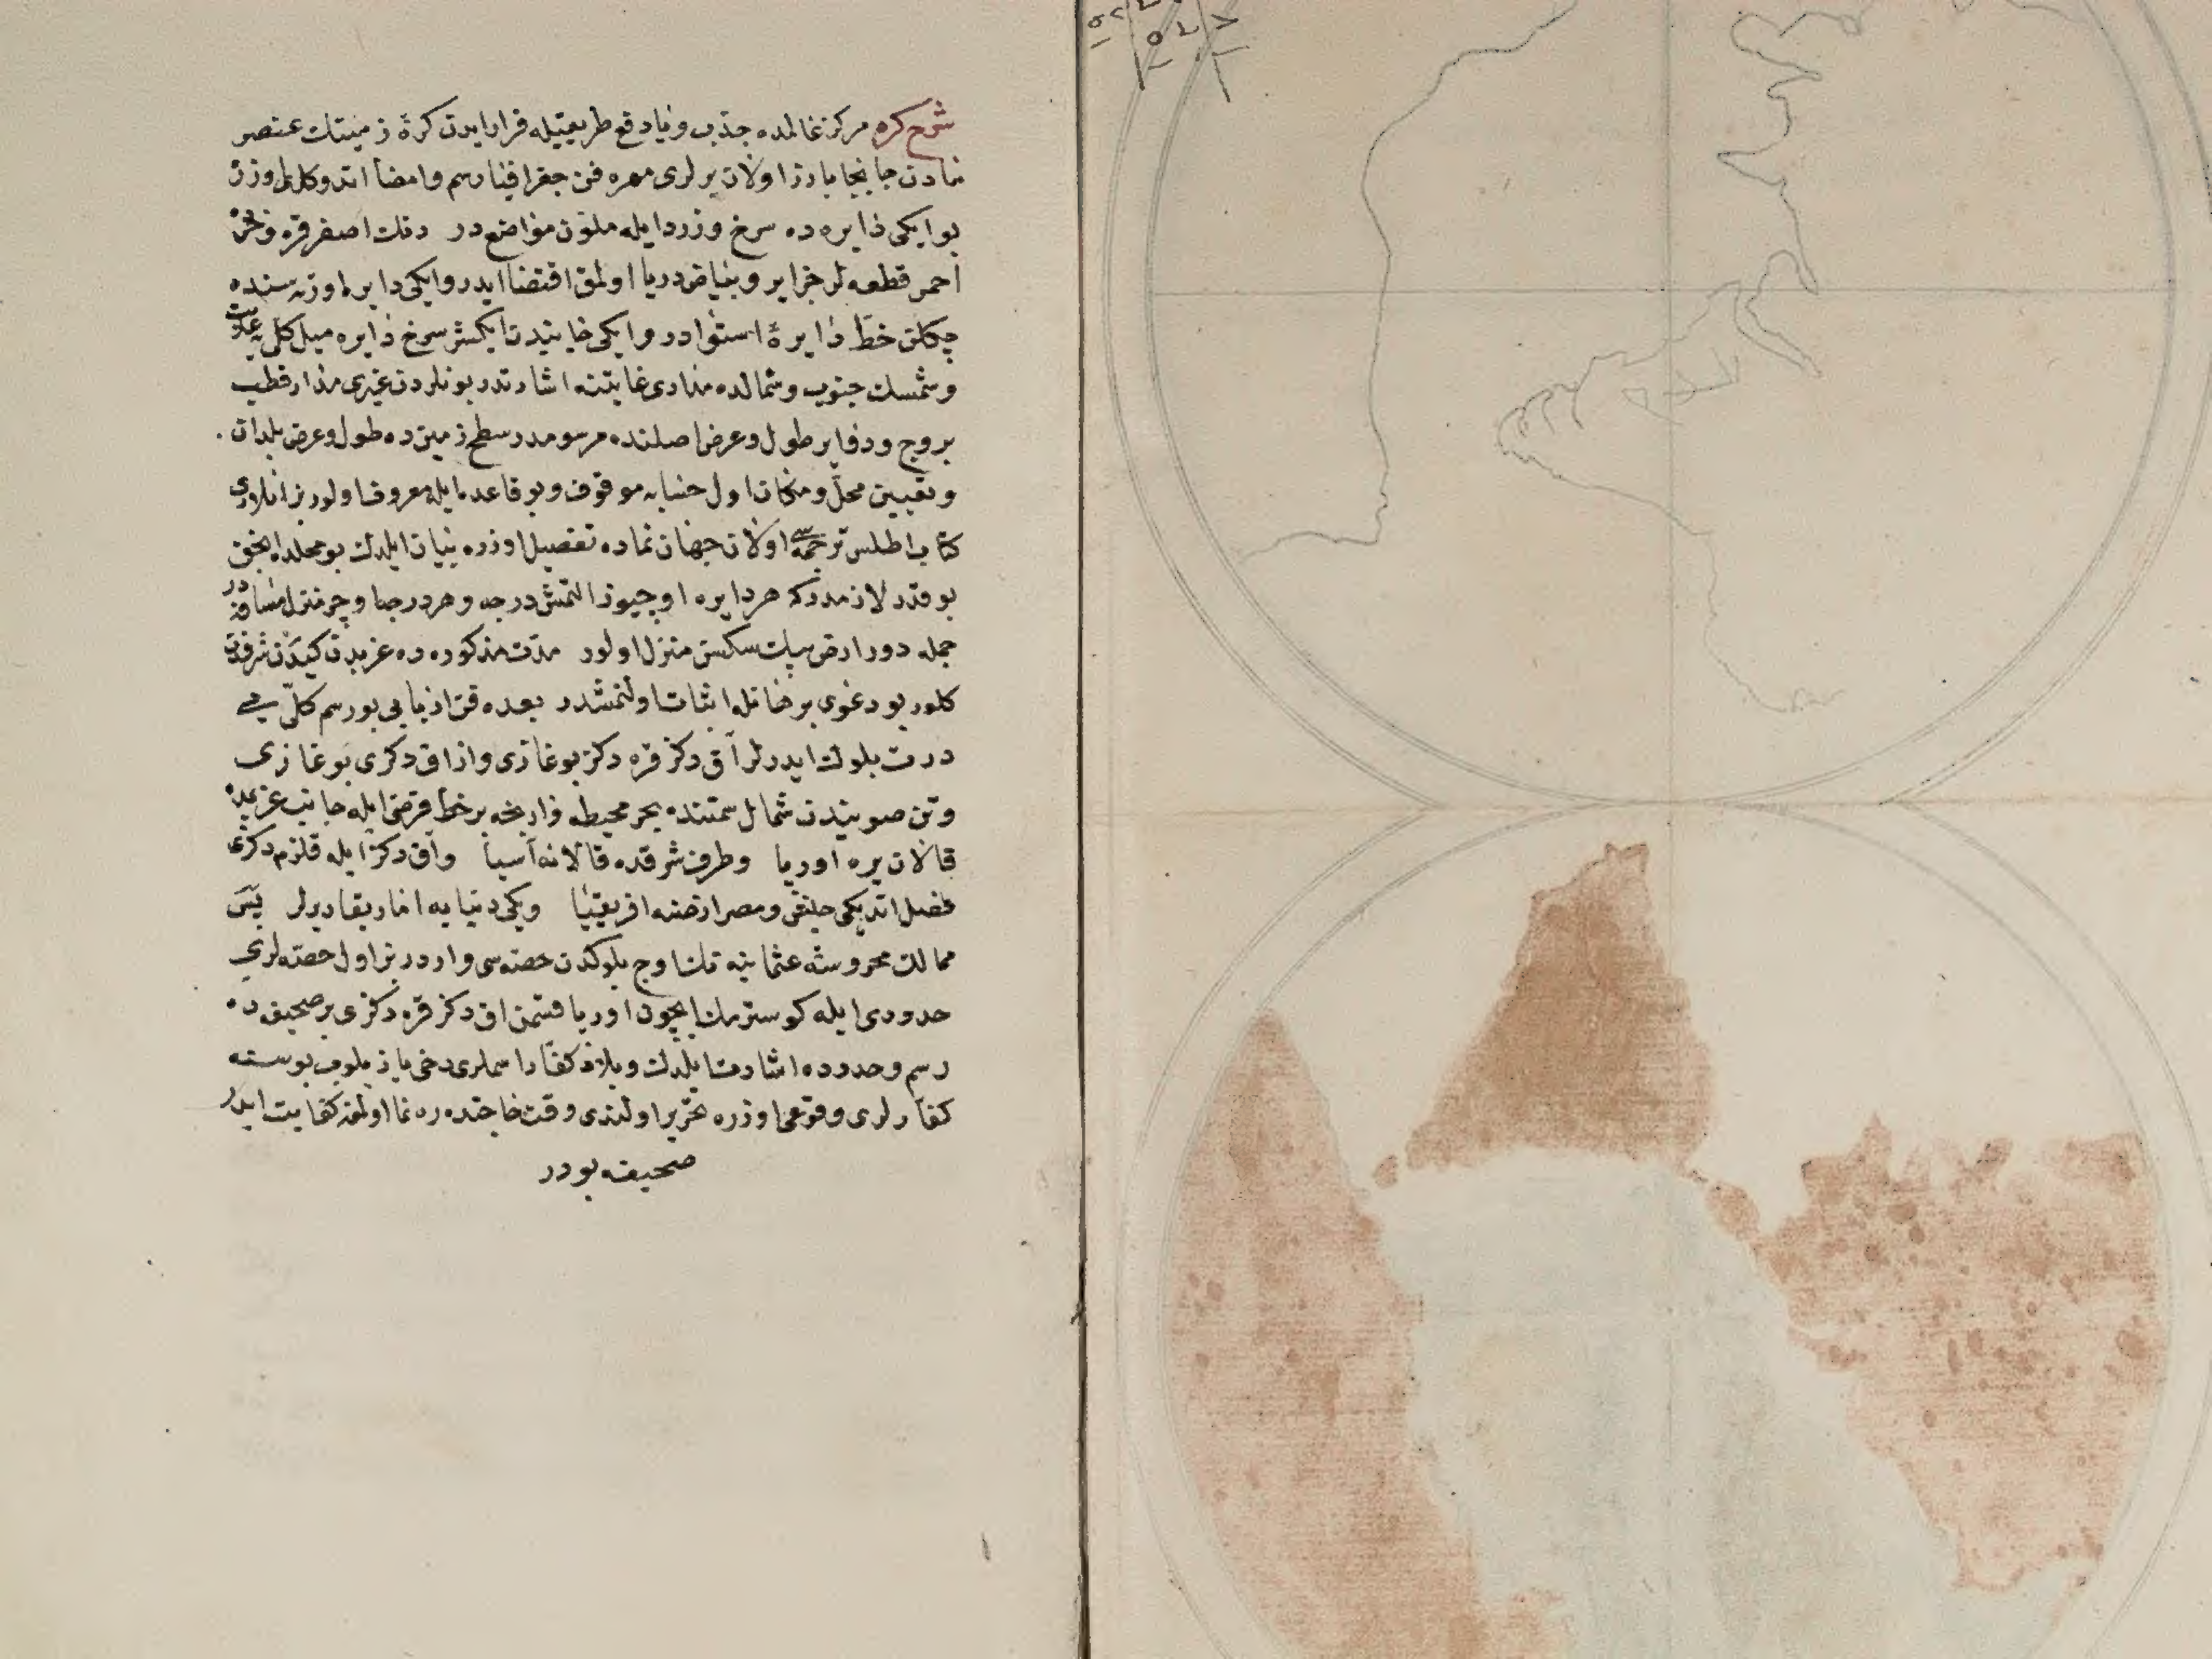 شرح كره مركز عالمده جذب و يا دفع طريقيله قرار ايدن كرۀ زمينك عنصر
مادن جا بجا بارز اولان يرلرى مهرۀ فن جغرافيا رسم و امضا اتدوكلرى اوزره
بو ايكى دايره ده سرخ و زرد ايله ملون مواضعدر رنك اصفر قره
احمر قطعه لر جزاير و بياض دريا اولمق اقتضا ايدر و ايكى دايره اوزرسنده
چكلن خط دايرۀ استوادر و ايكى جانبدن ايكشر سرخ دايره ميل كلى يه علامت
و شمسك جنوب و شمالده مدارى غايتنه اشارتدر بونلردن غيرى مدار قطب
بروج و دواير طول و عرض اصلنده مرسومدر سطح زمينده طول و عرض بلدان
و تعيين محل و مكان اول حسابه موقوف و بو قاعده ايله معروف اولور بز انلرى
كتاب اطلس ترجمه سى اولان جهان نماده تفصيل اوزره بيان ايلدك بو محلده انجق
بو قدر لازمدر كه هر دايره اوچيوز التمش درجه و هر درجه اوچر منزل مسافه در
جمله دور ارض بيك سكسن منزل اولور مدت مذكوره ده غربدن كيدن شرقدن
كلور بو دعوى برهانله اثبات اولنمشدر بعده فن اربابى بو رسم كلى يى
درت بلوك ايدرلر آق دكز قره دكز بوغازى و ازاق دكزى بوغازى
و تن صويندن شمال سمتنده بحر محيطه وارنجه بر خط فرضى ايله جانب غربيده
قالان يره اوريا و طرف شرقده قالانه آسيا و اق دكز ايله قلزم دكزى
فصل اتديكى و مصر ارضنه افريقيا و يكى دنيايه اماريقا ديرلر پس
ممالك محروسۀ عثمانيه نك اوج بلوكدن حصه سى واردر بز اول حصه لرى
حدودى ايله كوسترمك ايچون اوريا قسمن اق دكز قره دكزى بر صحيفه ده
رسم و حدوده اشارت ايلدك و بلاد كفار اسملرى دخى يازيلوب بوسنه
كفارلرى وقوعى اوزره تحرير اولندى وقت حاجتده ره نما اولمغه كفايت ايدر
صحيفه بودر